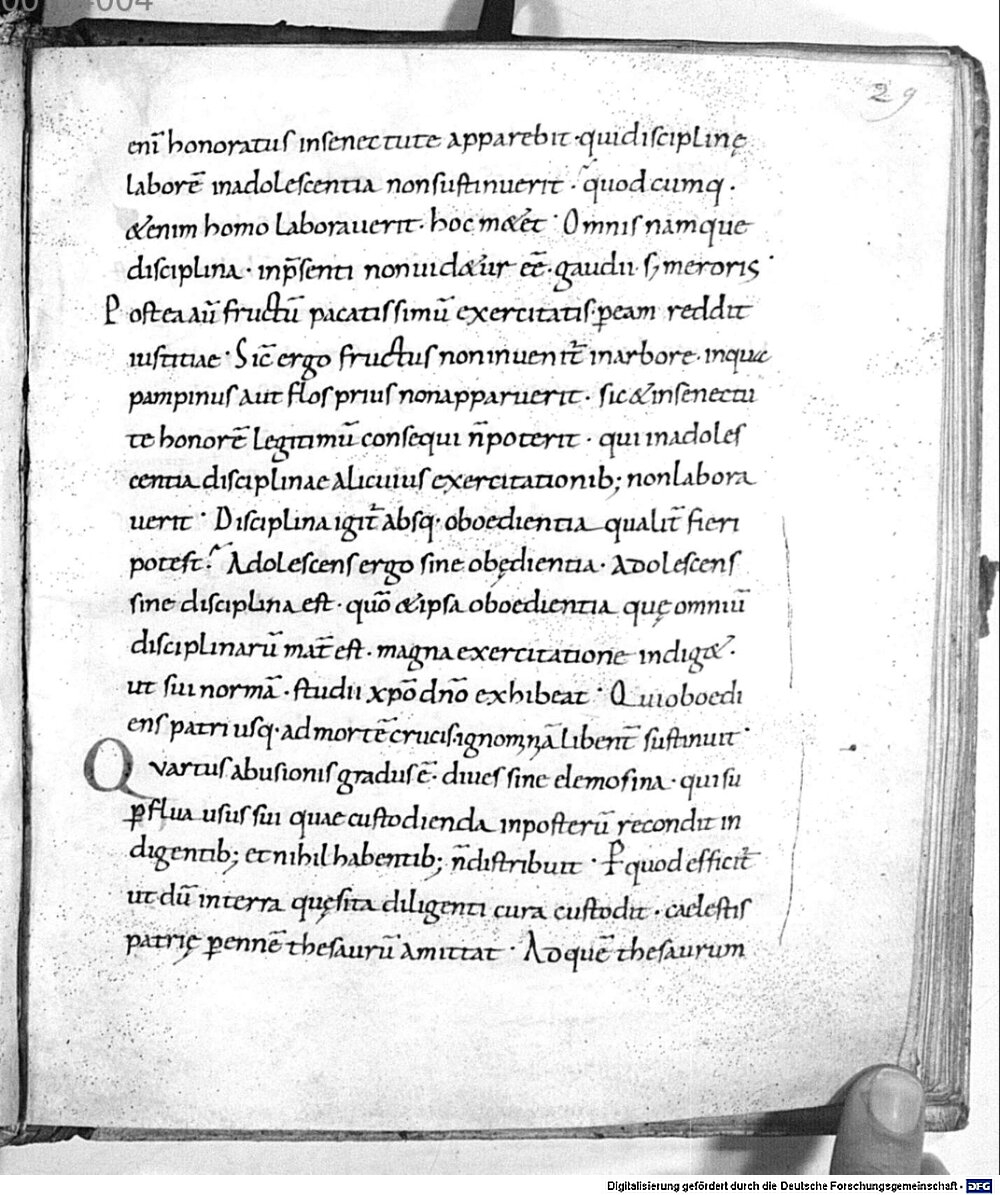 29
eni̅ honoratus insenectute apparebit · quidisciplinę
labore̅ inadolescentia nonsustinuerit · quodcumq ·
&enim homo laborauerit · hoc m&& · Omnis namque
disciplina · inp̅senti nonuid&ur ee̅ · gaudii s; meroris ·
Postea au̅ fructu̅ pacatissimu̅ exercitatis · ꝑeam reddit
iustitiae · Sic̅ ergo fructus noninuenit̅ inarbore · inqua
pampinus aut flos prius nonapparuerit · sic&insenectu
te honore̅ legitimu̅ consequi n̅poterit · qui inadoles
centia disciplinae alicuius exercitationib; nonlabora
uerit · Disciplina igit̅ absq · oboedientia qualit̅ fieri
potest? Adolescens ergo sine obędientia · Adolescens
sine disciplina est · quo̅ &ipsa oboedientia quę omniu̅
disciplinaru̅ mat̅ est · magna exercitatione indig& ·
ut sui norma̅ · studii xp̅o dn̅o exhibeat · Quioboedi
ens patri usq · ad morte̅ crucis ignominia̅ libent̅ sustinuit ·
Quartus abusionis gradus e̅ · diues sine elemosina · qui su
ꝑflua usus sui quae custodienda inposteru̅ recondit in
digentib; et nihil habentib; n̅distribuit · P quod efficit̅
ut du̅ in terra quęsita diligenti cura custodit · caelestis
patrię ꝑenne̅ thesauru̅ amittat · Adque̅ thesaurum
Digitalisierung gefördert durch die Deutsche Forschungsgemeinschaft - DFG